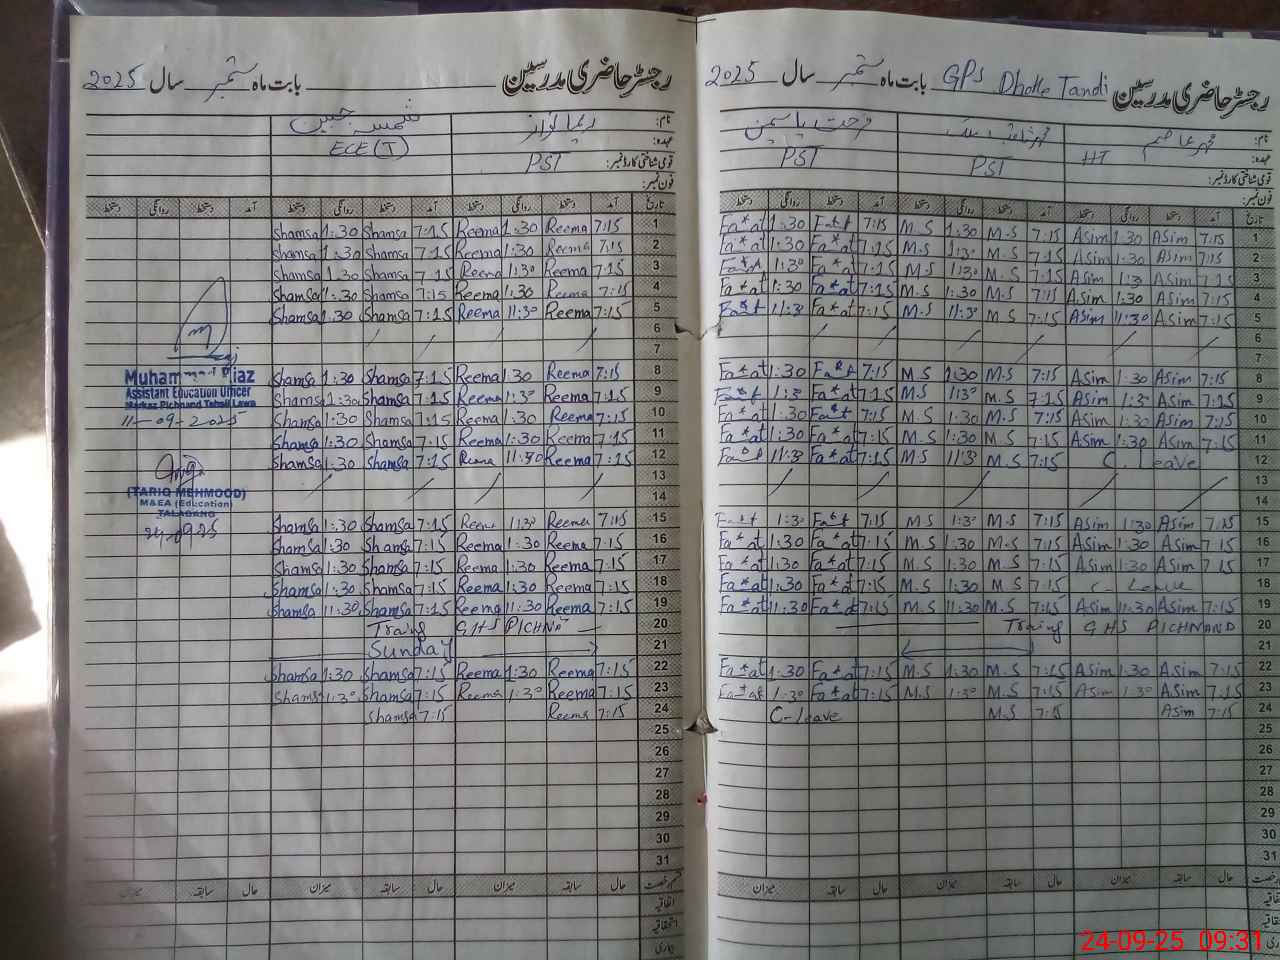 رجسٹر حاضری مدرسین بابت ماہ ستمبر سال 2025
نام: ریما نواز شمسہ جبین
عہدہ: PST ECE (T)
قومی شناختی کارڈ نمبر:
فون نمبر:
تاریخ آمد دستخط روانگی دستخط آمد دستخط روانگی دستخط آمد دستخط روانگی دستخط
Shamsa 1:30 Shamsa 7:15 Reema 1:30 Reema 7:15 1
Shamsa 1:30 Shamsa 7:15 Reema 1:30 Reema 7:15 2
Shamsa 1:30 Shamsa 7:15 Reema 1:30 Reema 7:15 3
Shamsa 1:30 Shamsa 7:15 Reema 1:30 Reema 7:15 4
Shamsa 1:30 Shamsa 7:15 Reema 11:30 Reema 7:15 5
6
7
Shamsa 1:30 Shamsa 7:15 Reema 1:30 Reema 7:15 8
Shamsa 1:30 Shamsa 7:15 Reema 1:30 Reema 7:15 9
Shamsa 1:30 Shamsa 7:15 Reema 1:30 Reema 7:15 10
Shamsa 1:30 Shamsa 7:15 Reema 1:30 Reema 7:15 11
Shamsa 1:30 Shamsa 7:15 Reema 11:30 Reema 7:15 12
13
14
Shamsa 1:30 Shamsa 7:15 Reema 1:30 Reema 7:15 15
Shamsa 1:30 Shamsa 7:15 Reema 1:30 Reema 7:15 16
Shamsa 1:30 Shamsa 7:15 Reema 1:30 Reema 7:15 17
Shamsa 1:30 Shamsa 7:15 Reema 1:30 Reema 7:15 18
Shamsa 11:30 Shamsa 7:15 Reema 11:30 Reema 7:15 19
Traing GHS PICHNA 20
Sunday 21
Shamsa 1:30 Shamsa 7:15 Reema 1:30 Reema 7:15 22
Shamsa 1:30 Shamsa 7:15 Reema 1:30 Reema 7:15 23
Shamsa 7:15 Reema 7:15 24
25
26
27
28
29
30
31
حال سابقہ میزان حال سابقہ میزان حال سابقہ میزان
اتفاقیہ
استحقاقیہ
بیماری
Muhammad Riaz
Assistant Education Officer
Markaz Pichnand Tehsil Lawa
11-09-2025
(TARIQ MEHMOOD)
M&EA (Education)
TALAGANG
24.09.25
رجسٹر حاضری مدرسین GPS Dhoke Tandi بابت ماہ ستمبر سال 2025
نام: محمد عاصم فرحت یاسمین
عہدہ: HT PST PST
قومی شناختی کارڈ نمبر:
فون نمبر:
تاریخ آمد دستخط روانگی دستخط آمد دستخط روانگی دستخط آمد دستخط روانگی دستخط
Fa*at 1:30 Fa*t 7:15 M.S 1:30 M.S 7:15 Asim 1:30 Asim 7:15 1
Fa*at 1:30 Fa*at 7:15 M.S 1:30 M.S 7:15 Asim 1:30 Asim 7:15 2
Fa*at 1:30 Fa*at 7:15 M.S 1:30 M.S 7:15 Asim 1:3 Asim 7:15 3
Fa*at 1:30 Fa*at 7:15 M.S 1:30 M.S 7:15 Asim 1:30 Asim 7:15 4
Fa*t 11:3 Fa*at 7:15 M.S 11:30 M.S 7:15 Asim 11:30 Asim 7:15 5
6
7
Fa*at 1:30 Fa*t 7:15 M.S 1:30 M.S 7:15 Asim 1:30 Asim 7:15 8
Fa*t 1:30 Fa*at 7:15 M.S 1:30 M.S 7:15 Asim 1:30 Asim 7:15 9
Fa*at 1:30 Fa*t 7:15 M.S 1:30 M.S 7:15 Asim 1:30 Asim 7:15 10
Fa*at 1:30 Fa*at 7:15 M.S 1:30 M.S 7:15 Asim 1:30 Asim 7:15 11
Fa*t 11:3 Fa*at 7:15 M.S 11:3 M.S 7:15 C. Leave 12
13
14
Fa*t 1:30 Fa*t 7:15 M.S 1:30 M.S 7:15 Asim 1:30 Asim 7:15 15
Fa*at 1:30 Fa*at 7:15 M.S 1:30 M.S 7:15 Asim 1:30 Asim 7:15 16
Fa*at 1:30 Fa*at 7:15 M.S 1:30 M.S 7:15 Asim 1:30 Asim 7:15 17
Fa*at 1:30 Fa*at 7:15 M.S 1:30 M.S 7:15 C- Leave 18
Fa*at 11:30 Fa*at 7:15 M.S 11:30 M.S 7:15 Asim 11:30 Asim 7:15 19
Traing GHS PICHNAND 20
21
Fa*at 1:30 Fa*at 7:15 M.S 1:30 M.S 7:15 Asim 1:30 Asim 7:15 22
Fa*at 1:30 Fa*at 7:15 M.S 1:30 M.S 7:15 Asim 1:30 Asim 7:15 23
C-leave M.S 7:15 Asim 7:15 24
25
26
27
28
29
30
31
حال سابقہ میزان حال سابقہ میزان حال سابقہ میزان
24-09-25 09:31